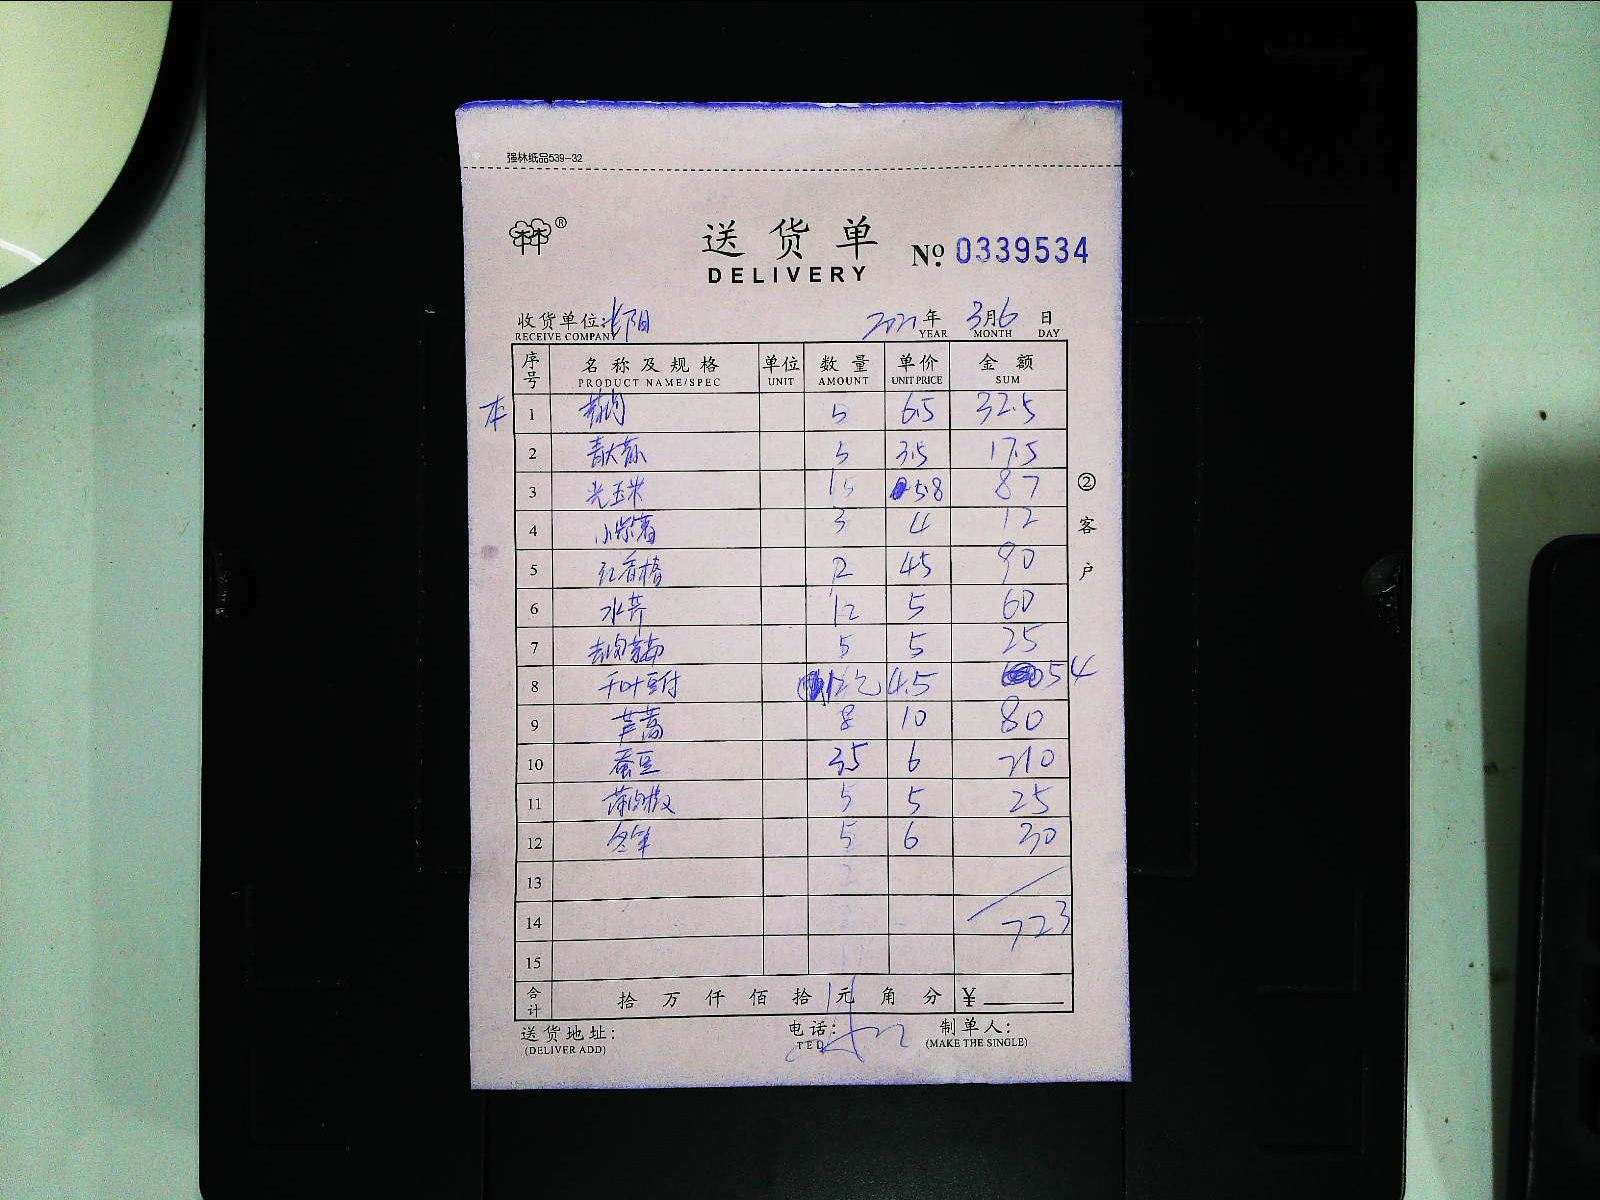 强林纸品539-32
林®
送货单
DELIVERY
№ 0339534
收货单位: 2021年 3月6日
RECEIVE COMPANY YEAR MONTH DAY
序号 名称及规格 单位 数量 单价 金额
PRODUCT NAME/SPEC UNIT AMOUNT UNIT PRICE SUM
本 1 5 6.5 32.5
2 青大蒜 5 3.5 17.5
3 光玉米 15 5.8 87
4 小紫薯 3 4 12
5 红香椿 2 45 90
6 水芹 12 5 60
7 5 5 25
8 千叶豆付 12 4.5 54
9 芦蒿 8 10 80
10 蚕豆 35 6 210
11 5 5 25
12 5 6 30
13
14 723
15
合计 拾 万 仟 佰 拾 元 角 分 ¥
送货地址: 电话: 制单人:
(DELIVER ADD) TED (MAKE THE SINGLE)
②客户